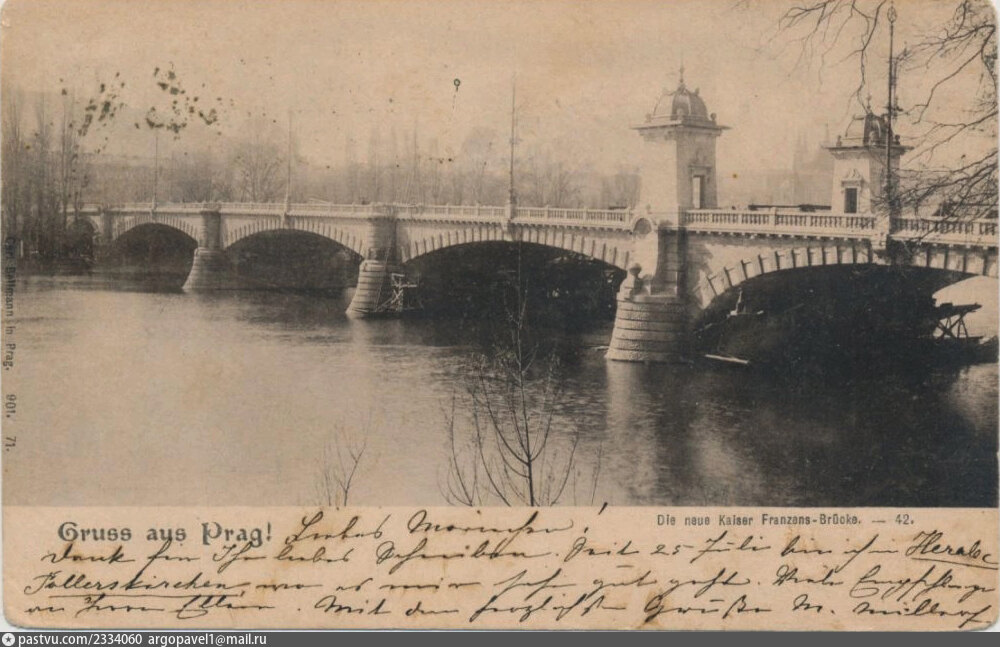 Carl Bellmann in Prag. 901. 71.
Gruss aus Prag!
Die neue Kaiser Franzens-Brücke. — 42.
Liebes !
Dank für Ihr liebes Schreiben. Seit 25 Juli bin ich
wo es mir sehr gut geht. Viele
an Herrn . Mit den herzlichsten Grüßen M.
pastvu.com/2334060 argopavel1@mail.ru